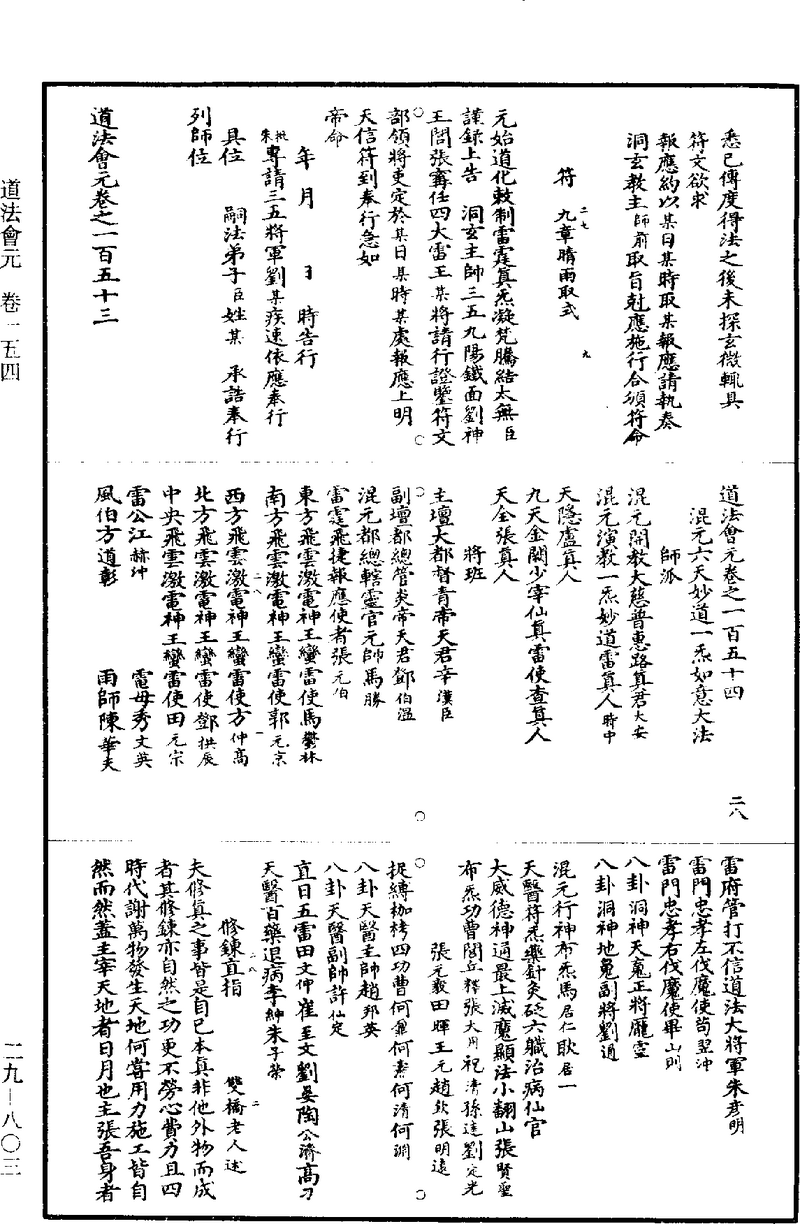 道法會元　卷一五四
二九—八〇三
悉已傳度得法之後未探玄微輒具
符文欲求
報應約以某日某時取某報應請執奏
洞玄教主師前取旨尅應施行合頒符命
符　九章晴雨取式
二七
九
元始道化敕制雷霆真炁凝梵騰結太無臣
謹錄上告　洞玄主帥三五九陽鐵面劉神
王閻張寗任四大雷王某將請行證盟符文
部領將吏定於某日某時某處報應上明
天信符到奉行急如
帝命
年　月　　日　時告行
批朱專請三五將軍劉某疾速依應奉行
具位　嗣法弟子臣姓某　承誥奉行
列師位
道法會元卷之一百五十三
道法會元卷之一百五十四　二八
混元六天妙道一炁如意大法
師派
混元開教大慈普惠路真君大安
混元演教一炁妙道雷真人時中
天隱盧真人
九天金闕少宰仙真雷使查真人
天全張真人
將班
主壇大都督青帝天君辛漢臣
副壇都總管炎帝天君鄧伯溫
混元都總轄靈官元帥馬勝
雷霆飛捷報應使者張元伯
東方飛雲激電神王蠻雷使馬鬱林
南方飛雲激電神王蠻雷使郭元京
二八
一
西方飛雲激電神王蠻雷使方仲高
北方飛雲激電神王蠻雷使鄧拱辰
中央飛雲激電神王蠻雷使田元宗
雷公江赫沖　電母秀文英
風伯方道彰　雨師陳華夫
雷府管打不信道法大將軍朱彥明
雷門忠孝左伐魔使苟翌沖
雷門忠孝右伐魔使畢山則
八卦洞神天魔正將龐靈
八卦洞神地魔副將劉通
混元行神布炁馬居仁耿居一
天醫符炁藥針灸砭六職治病仙官
大威德神通最上滅魔顯法小翻山張賢聖
布炁功曹閻丘釋張大用祝清孫達劉定光
張元毅田暉王元趙欽張明遠
捉縛枷栲四功曹何彙何素何清何澗
八卦天醫主帥趙邦英
八卦天醫副帥許仙定
直日五雷田文仲崔至文劉晏陶公濟高刁
天醫百藥退病李紳朱子榮
修鍊直指　雙橋老人述
二八
二
夫修真之事皆是自己本真非他外物而成
者其修鍊亦自然之功更不勞心費力且四
時代謝萬物發生天地何嘗用力施工皆自
然而然蓋主宰天地者日月也主張吾身者